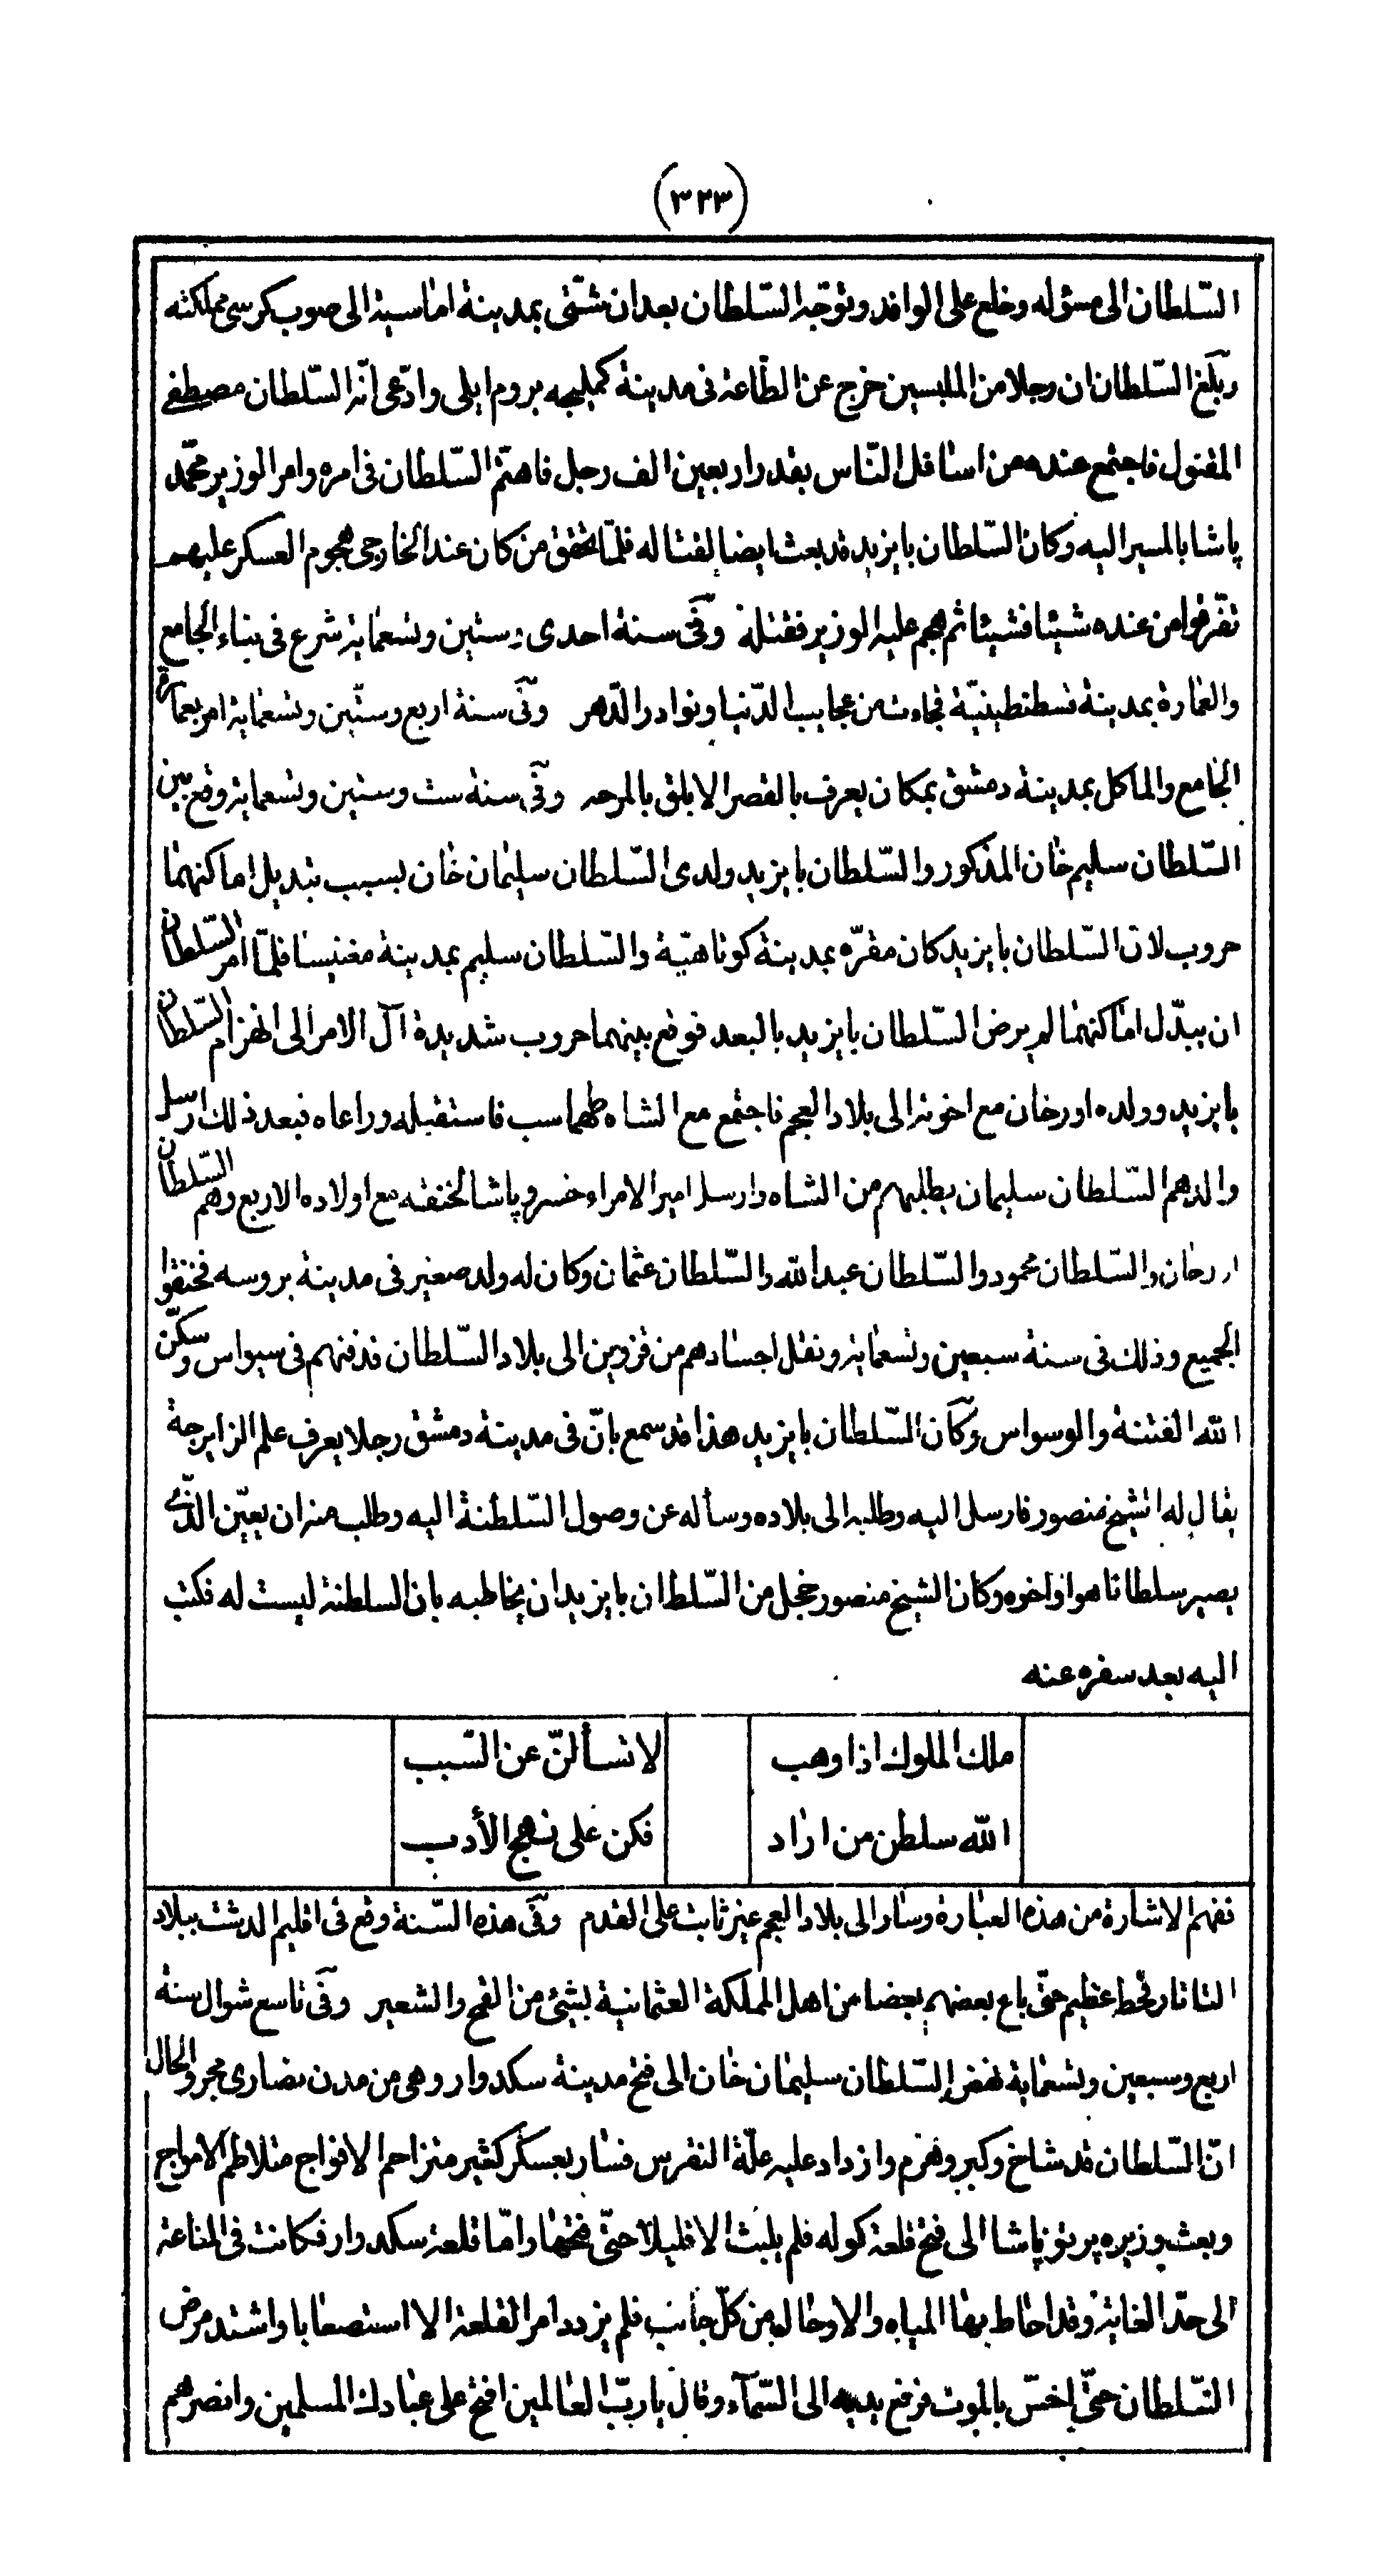 (٣٢٣)
السّلطان الى مسؤله وخلع على الوافد وتوجّه السّلطان بعد ان شتّى بمدينة اماسية الى صوب كرسى مملكته
وبلغ السّلطان ان رجلا من الملبسين خرج عن الطّاعة فى مدينة كميلجه بروم ايلى وادّعى انّه السّلطان مصطفى
المقتول فاجتمع عنده من اسافل النّاس بقدر اربعين الف رجل فاهتمّ السّلطان فى امره وامر الوزير محمّد
پاشا بالمسير اليه وكان السّلطان بايزيد قد بعث ايضا لقتاله فلمّا تحقق من كان عند الخارجى هجوم العسكر عليهم
تفّرقوا من عنده شيئا فشيئا ثم هجم عليه الوزير فقتله وفى سنة احدى وستين وتسعمائة شرع فى بناء الجامع
والعمارة بمدينة قسطنطينيّة فجاءت من عجايب الدّنيا ونوادر الدّهر وفى سنة اربع وستّين وتسعماية امر بعمارة
الجامع والماكل بمدينة دمشق بمكان يعرف بالقصر الابلق بالمرجه وفى سنة ست وستين وتسعماية وقع بين
السّلطان سليم خان المذكور والسّلطان بايزيد ولدى السّلطان سليمان خان بسبب تبديل اماكنهما
حروب لانّ السّلطان بايزيد كان مقرّه بمدينة كوتاهيّة والسّلطان سليم بمدينة مغنيسا فلمّا امر السّلطان
ان يبدّل اماكنهما لم يرض السّلطان بايزيد بالبعد فوقع بينهما حروب شديدة آل الامر الى انهزام السّلطان
بايزيد وولده اورخان مع اخوته الى بلاد العجم فاجتمع مع الشاه طهماسب فاستقبله وراعاه فبعد ذلك ارسل
والدهم السّلطان سليمان يطلبهم من الشاه وارسل امير الامراء خسرو پاشا لخنقه مع اولاده الاربع وهم السّلطان
اورخان والسّلطان محمود والسّلطان عبد الله والسّلطان عثمان وكان له ولد صغير فى مدينة بروسه فخنقوا
الجميع وذلك فى سنة سبعين وتسعماية ونقل اجسادهم من قزوين الى بلاد السّلطان فدفنهم فى سيواس وسكّن
الله الفتنة والوسواس وكان السّلطان بايزيد هذا قد سمع بانّ فى مدينة دمشق رجلا يعرف علم الزايرجة
يقال له الشيخ منصور فارسل اليه وطلبه الى بلاده وسأله عن وصول السّلطنة اليه وطلب منه ان يعيّن الذّى
يصير سلطانا هو او اخوه وكان الشيخ منصور خجل من السّلطان بايزيد ان يخاطبه بان السلطنة ليست له فكتب
اليه بعد سفره عنه
ملك الملوك اذا وهب لا تسألنّ عن السّبب
الله سلطن من اراد فكن على نهج الأدب
ففهم الاشارة من هذه العبارة وسار الى بلاد العجم غير ثابت على القدم وفى هذه السّنة وقع فى اقليم الدشت ببلاد
التاتار قحط عظيم حتّى باع بعضهم بعضا من اهل المملكة العثمانية بشئ من القمح والشعير وفى تاسع شوال سنة
اربع وسبعين وتسعماية نهض السّلطان سليمان خان الى فتح مدينة سكدوار وهى من مدن نصارى مجر والحال
انّ السّلطان قد شاخ وكبر وهرم وازداد عليه علّة النقرس فسار بعسكر كثير متزاحم الافواج متلاطم الامواج
وبعث وزيره پرتو پاشا الى فتح قلعة كوله فلم يلبث الا قليلا حتّى فتحها وامّا قلعة سكدوار فكانت فى المناعة
الى حدّ الغاية وقد احاط بها المياه والاوحال من كلّ جانب فلم يزدد امر القلعة الا استصعابا واشتد مرض
السّلطان حتّى احسّ بالموت فرفع يديه الى السّمآء وقال يا ربّ العالمين افتح على عبادك المسلمين وانصرهم